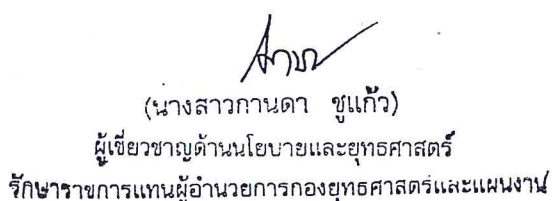 (นางสาวกานดา ชูแก้ว)
ผู้เชี่ยวชาญด้านนโยบายและยุทธศาสตร์
รักษาราชการแทนผู้อำนวยการกองยุทธศาสตร์และแผนงาน